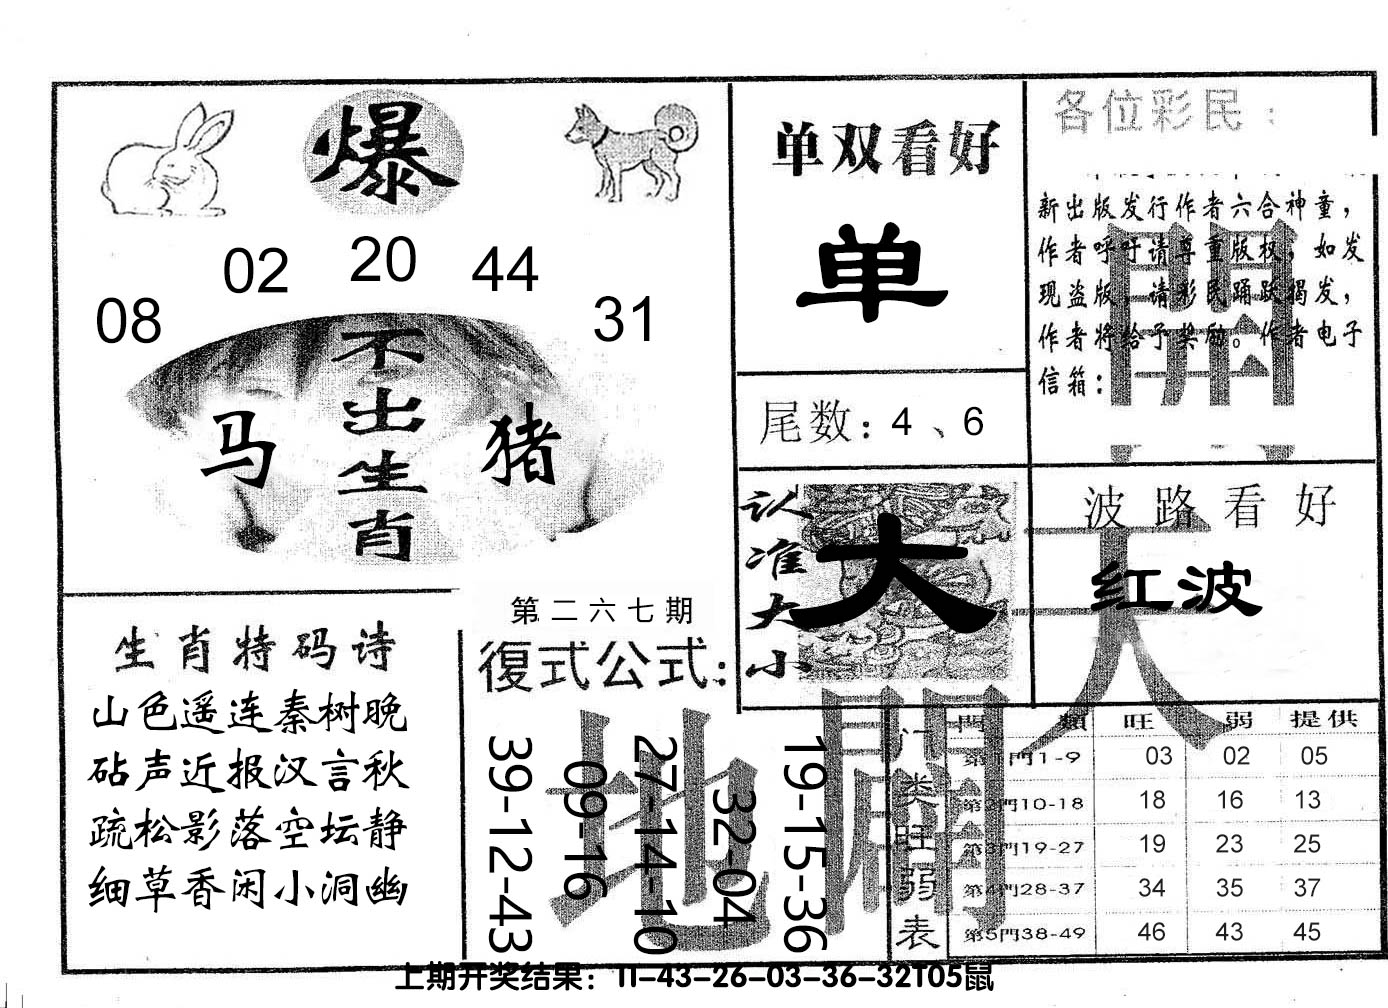 爆
08 02 20 44 31
不出生肖
马 猪
单双看好
单
尾数：4、6
各位彩民：
新出版发行作者六合神童，
作者呼吁请尊重版权，如发
现盗版，请彩民踊跃揭发，
作者将给予奖励。作者电子
信箱：
開
认准大小
大
波路看好
红波
天
生肖特码诗
山色遥连秦树晚
砧声近报汉言秋
疏松影落空坛静
细草香闲小洞幽
第二六七期
復式公式：
39-12-43
09-16
27-14-10
32-04
19-15-36
地
門
门类旺弱表
門類 旺 弱 提供
第1門1-9 03 02 05
第2門10-18 18 16 13
第3門19-27 19 23 25
第4門28-37 34 35 37
第5門38-49 46 43 45
上期开奖结果：11-43-26-03-36-32T05鼠